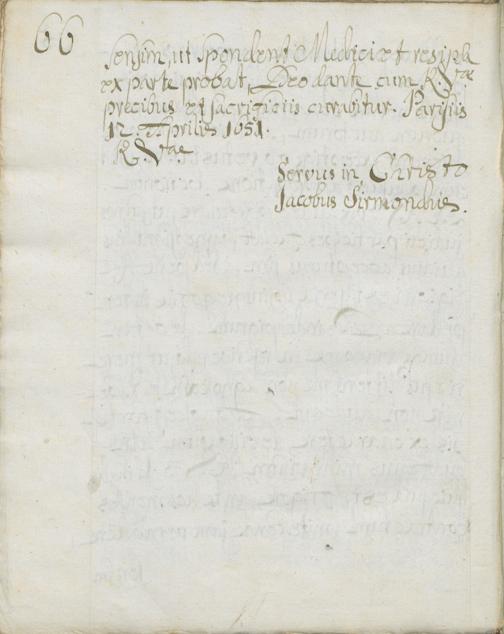 66
sensim, ut spondent Medici et res ipsa
ex parte probat, Deo dante cum R. Vræ
precibus et sacrificiis curabitur. Parisiis
12. Aprilis 1651.
R. Vræ
Servus in Christo
Jacobus Sirmondus.